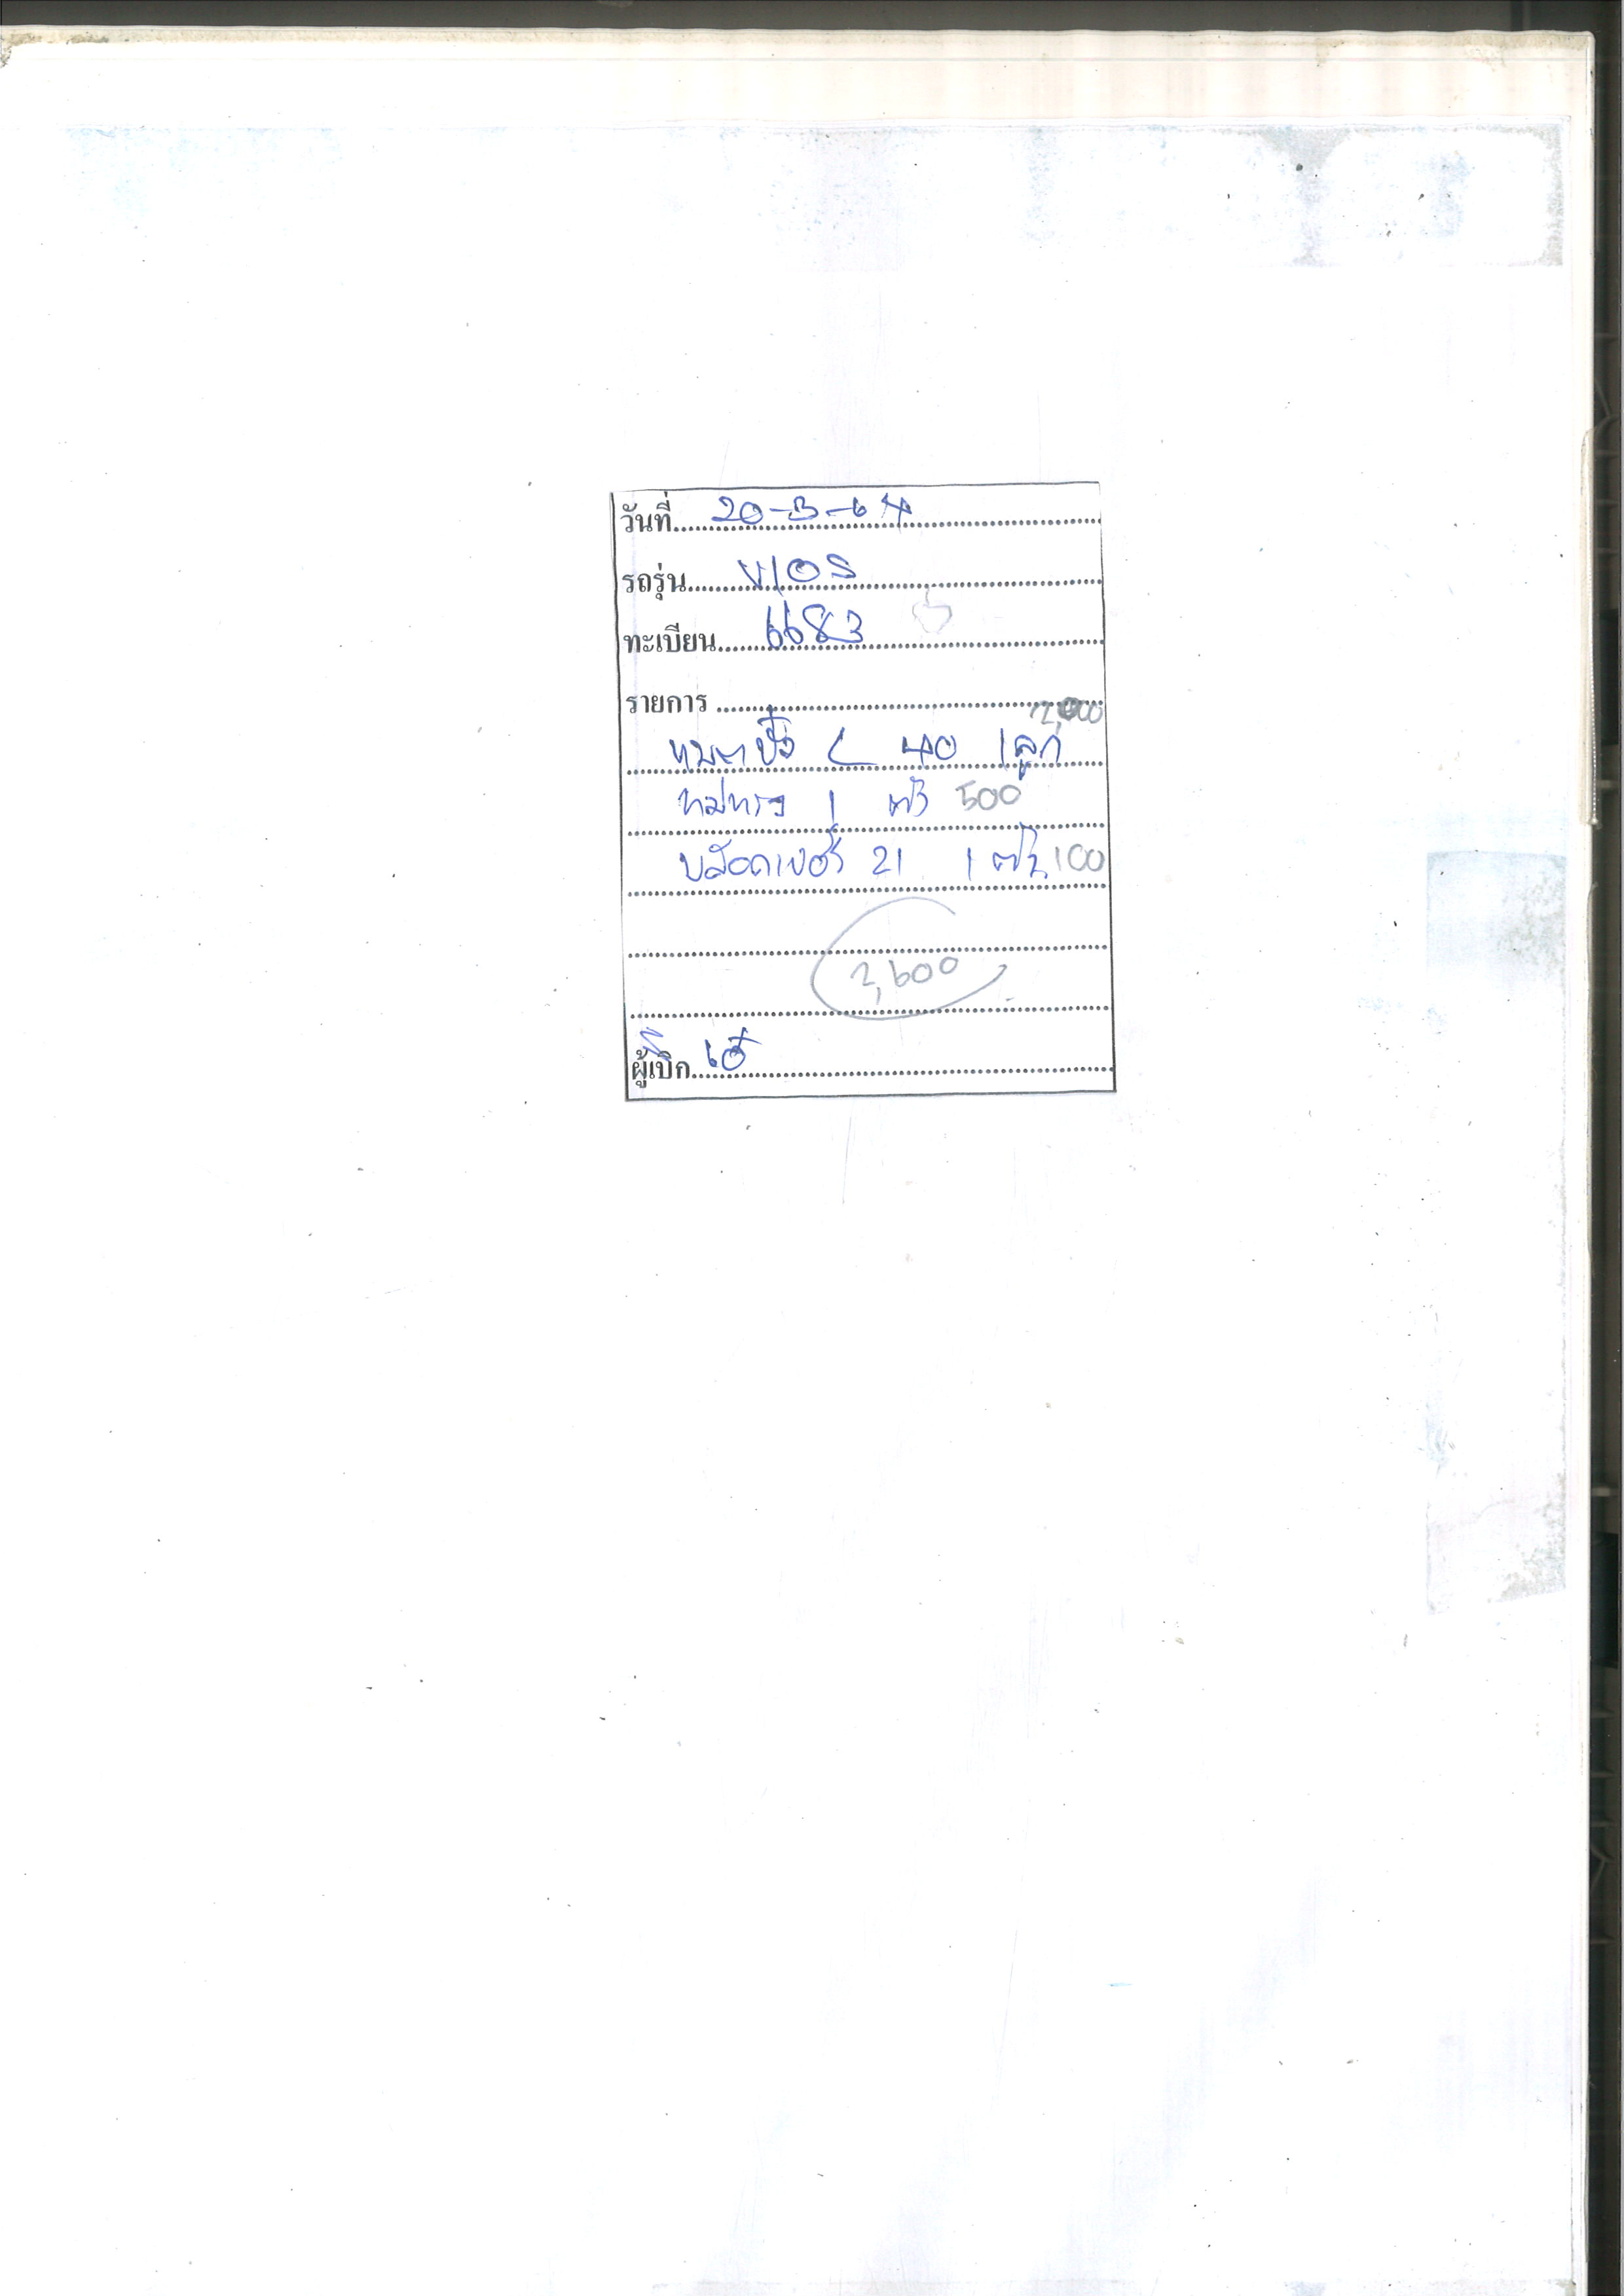 วันที่ 20-3-64
รถรุ่น VIOS
ทะเบียน 6683
รายการ
2,000
L 40 1 ลูก
1 ตัว 500
บล็อกเบอร์ 21 1 ตัว 100
2,600
ผู้เบิก